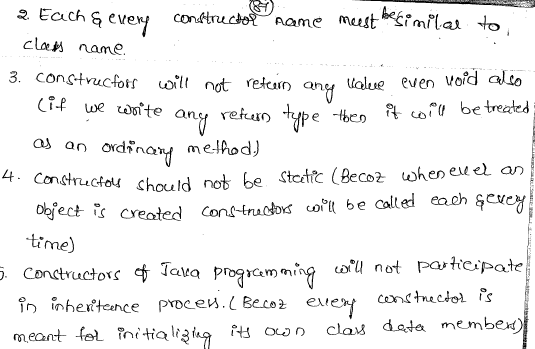 84
2. Each & every constructor name must be similar to
class name.
3. constructors will not return any value even void also
(if we write any return type then it will be treated
as an ordinary method)
4. constructors should not be static (Becoz whenever an
object is created constructors will be called each & every
time)
5. constructors of Java programming will not participate
in inheritance process. (Becoz every constructor is
meant for initializing its own class data members)